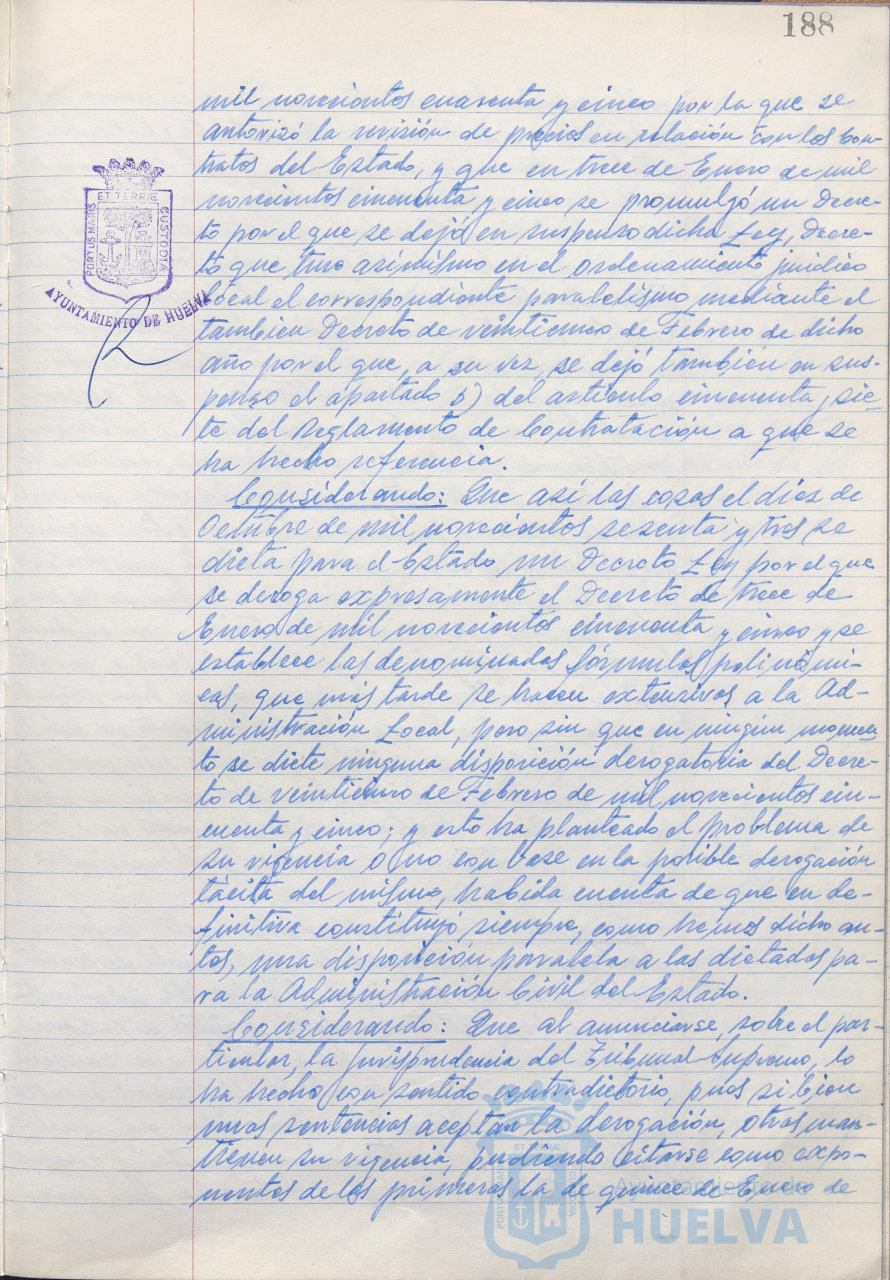 188
mil novecientos cuarenta y cinco por la que se
autorizó la revisión de precios en relación con los Con-
tratos del Estado, y que en trece de Enero de mil
novecientos cincuenta y cinco se promulgó un Decre-
to por el que se dejó en suspenso dicha Ley, Decre-
to que tuvo asimismo en el ordenamiento jurídico
local el correspondiente paralelismo mediante el
tambien Decreto de veinticinco de Febrero de dicho
año por el que, a su vez, se dejó también en sus-
penso el apartado b) del articulo cincuenta y sie-
te del Reglamento de Contratación a que se
ha hecho referencia.
Considerando: Que así las cosas el diez de
Octubre de mil novecientos sesenta y tres se
dicta para el Estado un Decreto Ley por el que
se deroga expresamente el Decreto de trece de
Enero de mil novecientos cincuenta y cinco y se
establece las denominadas fórmulas polinómi-
cas, que más tarde se hacen extensivas a la Ad-
ministración Local, pero sin que en ningún momen-
to se dicte ninguna disposición derogatoria del Decre-
to de veinticinco de Febrero de mil novecientos cin-
cuenta y cinco; y esto ha planteado el problema de
su vigencia o no con base en la posible derogación
tácita del mismo, habida cuenta de que en de-
finitiva constituyó siempre, como hemos dicho an-
tes, una disposición paralela a las dictadas pa-
ra la Administración Civil del Estado.
Considerando: Que al anunciarse, sobre el par-
ticular, la Jurisprudencia del Tribunal Supremo, lo
ha hecho con sentido contradictorio, pues si bien
unas sentencias aceptan la derogación, otras man-
tienen su vigencia, pudiendo citarse como expo-
nentes de las primeras la de quince de Enero de
ET TERRÆ
PORTUS MARIS
CUSTODIA
AYUNTAMIENTO DE HUELVA
Ayuntamiento de
HUELVA